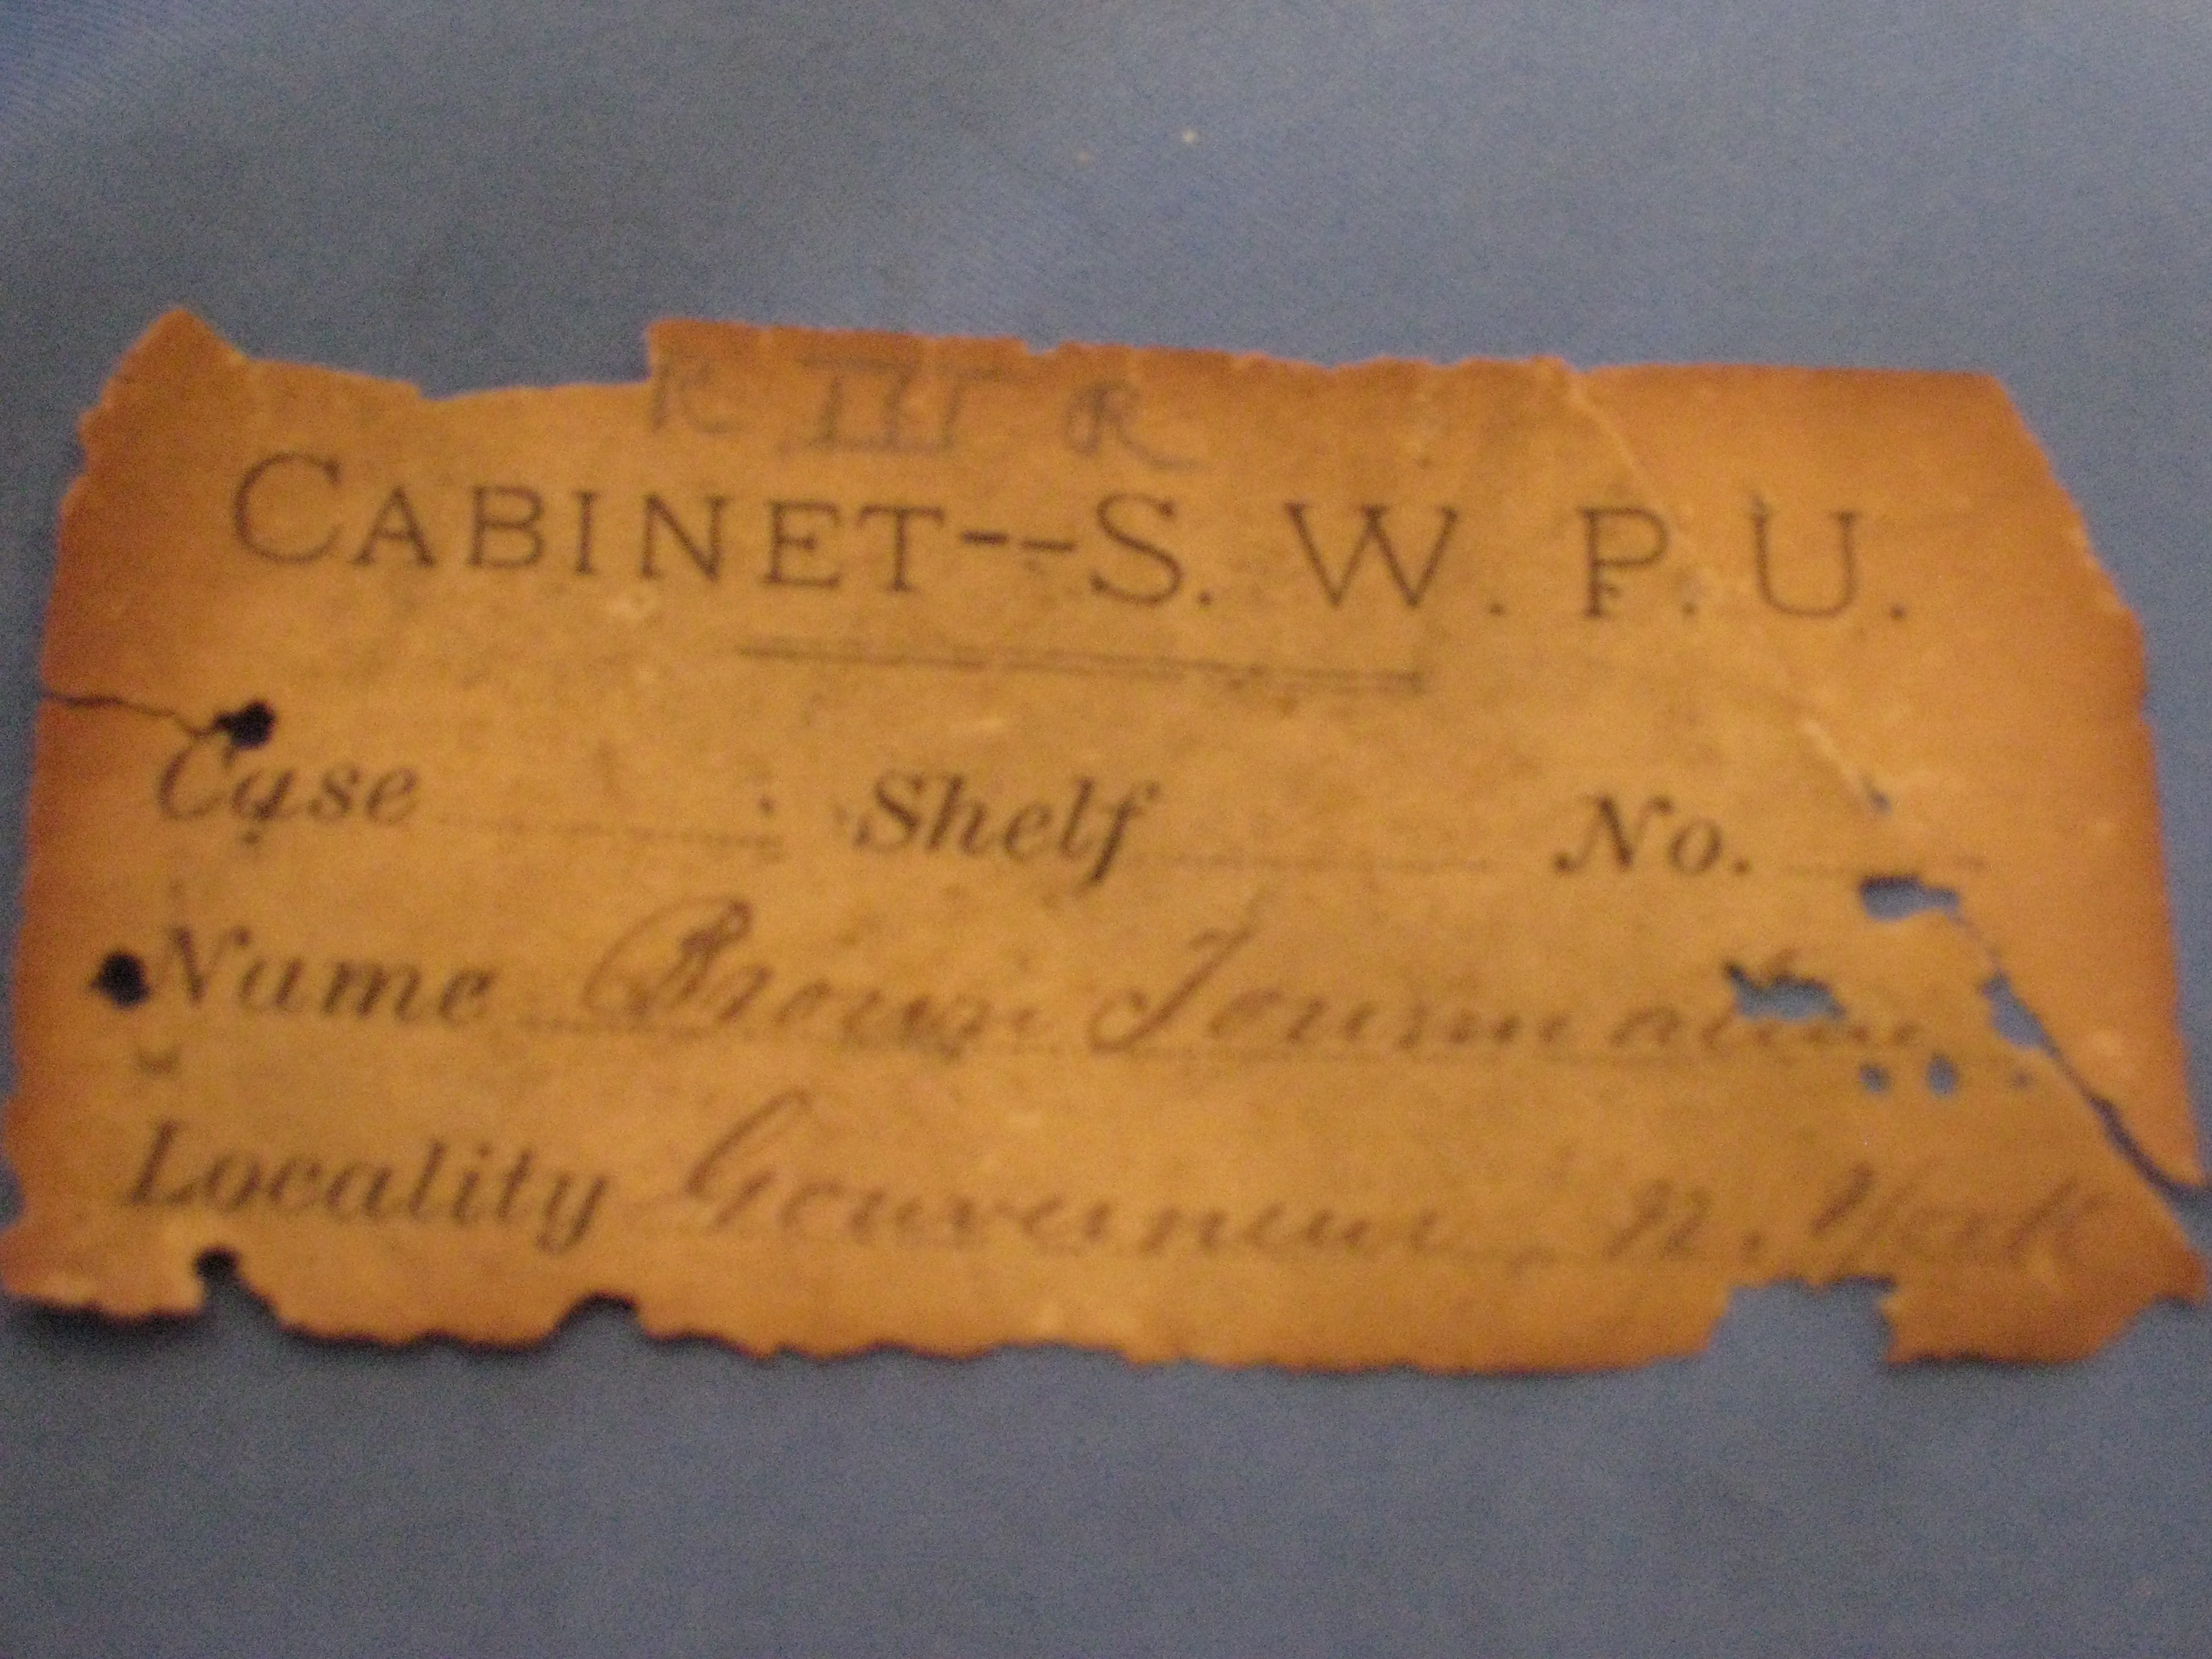 R III R
CABINET--S. W. P. U.
Case Shelf No.
Name Brown Tourmaline
Locality Gouverneur, N. York